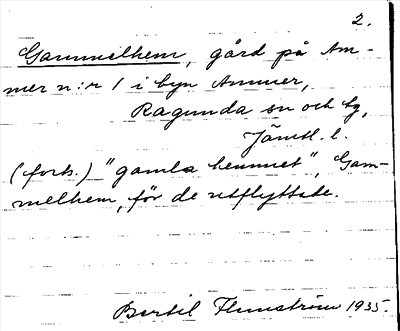 2.
Gammelhem, gård på Am-
mer n:r 1 i byn Ammer,
Ragunda sn och tg,
Jämtl. l.
(forts.) "gamla hemmet", Gam-
melhem, för de utflyttade.
Bertil Flemström 1935.